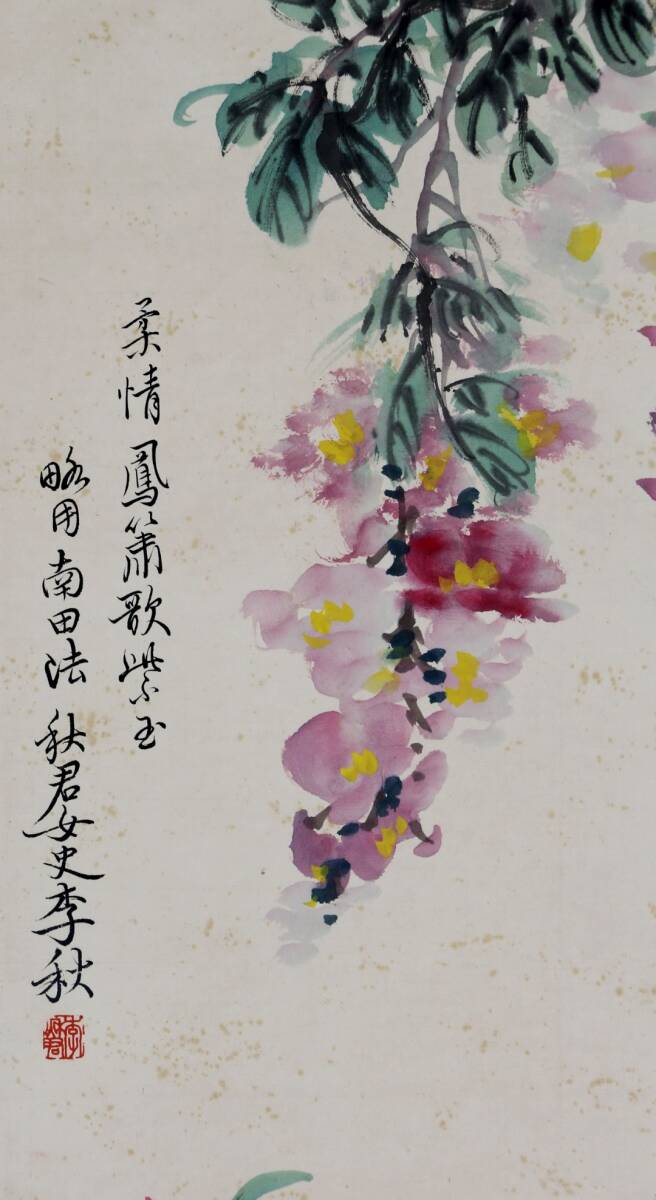 柔情鳳簫歌紫玉
略用南田法 秋君女史李秋